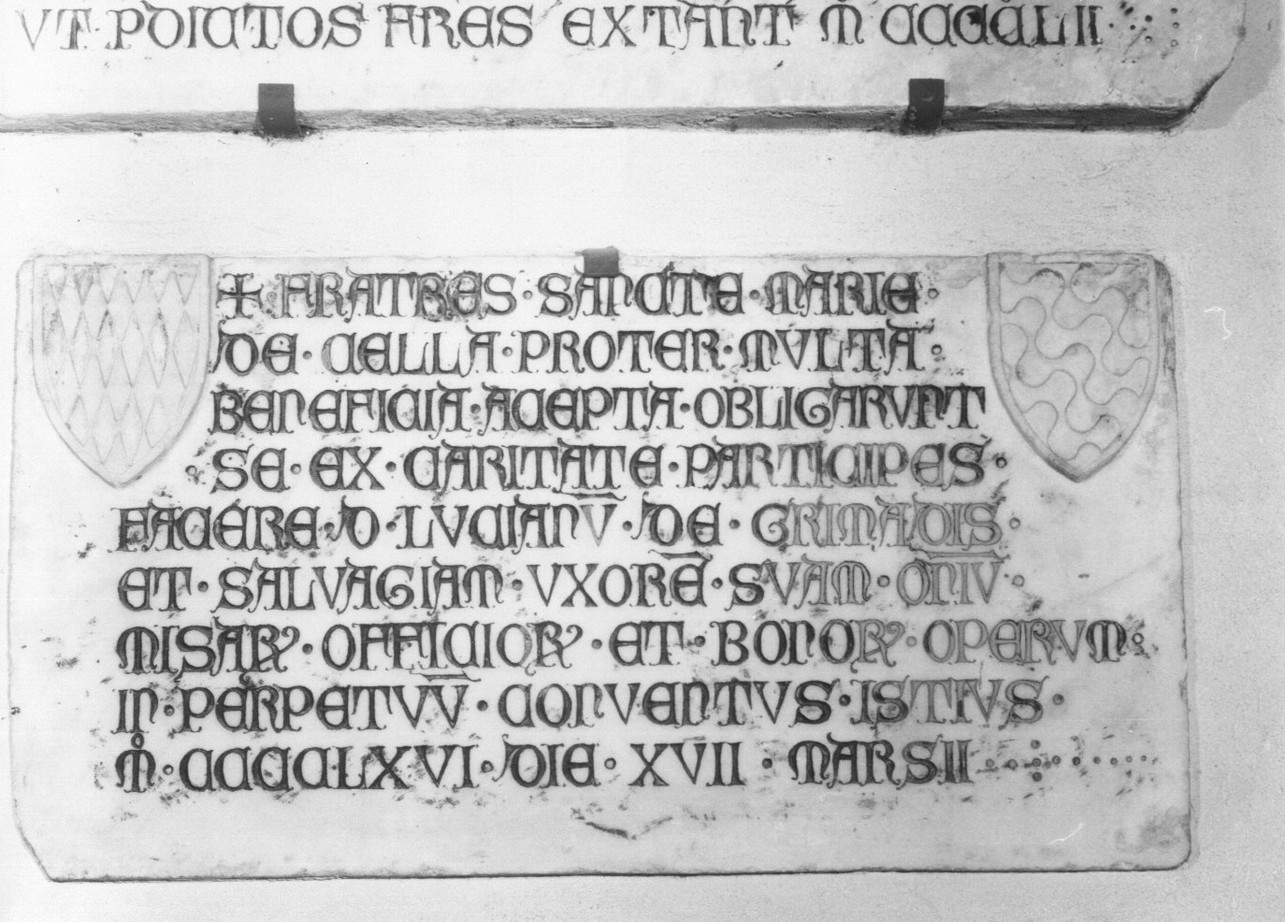 VT · PDICTOS FRES EXTANT M̊ CCCCLII
+ FRATRES · SANCTE · MARIE ·
DE · CELLA · PROTER · MVLTA ·
BENEFICIA · ACEPTA · OBLIGARVNT
SE · EX · CARITATE · PARTICIPES ·
FACERE · D · LVCIANV̄ · DE · GRIMADIS ·
ET · SALVAGIAM · VXORĒ · SVAM · ON̄IV̄ ·
MISARꝜ · OFFICIORꝜ · ET · BONORꝜ · OPERVM :
IN · PERPETVV̄ · CONVENTVS · ISTIVS ·
M̊ · CCCCLXVI · DIE · XVII · MARSII